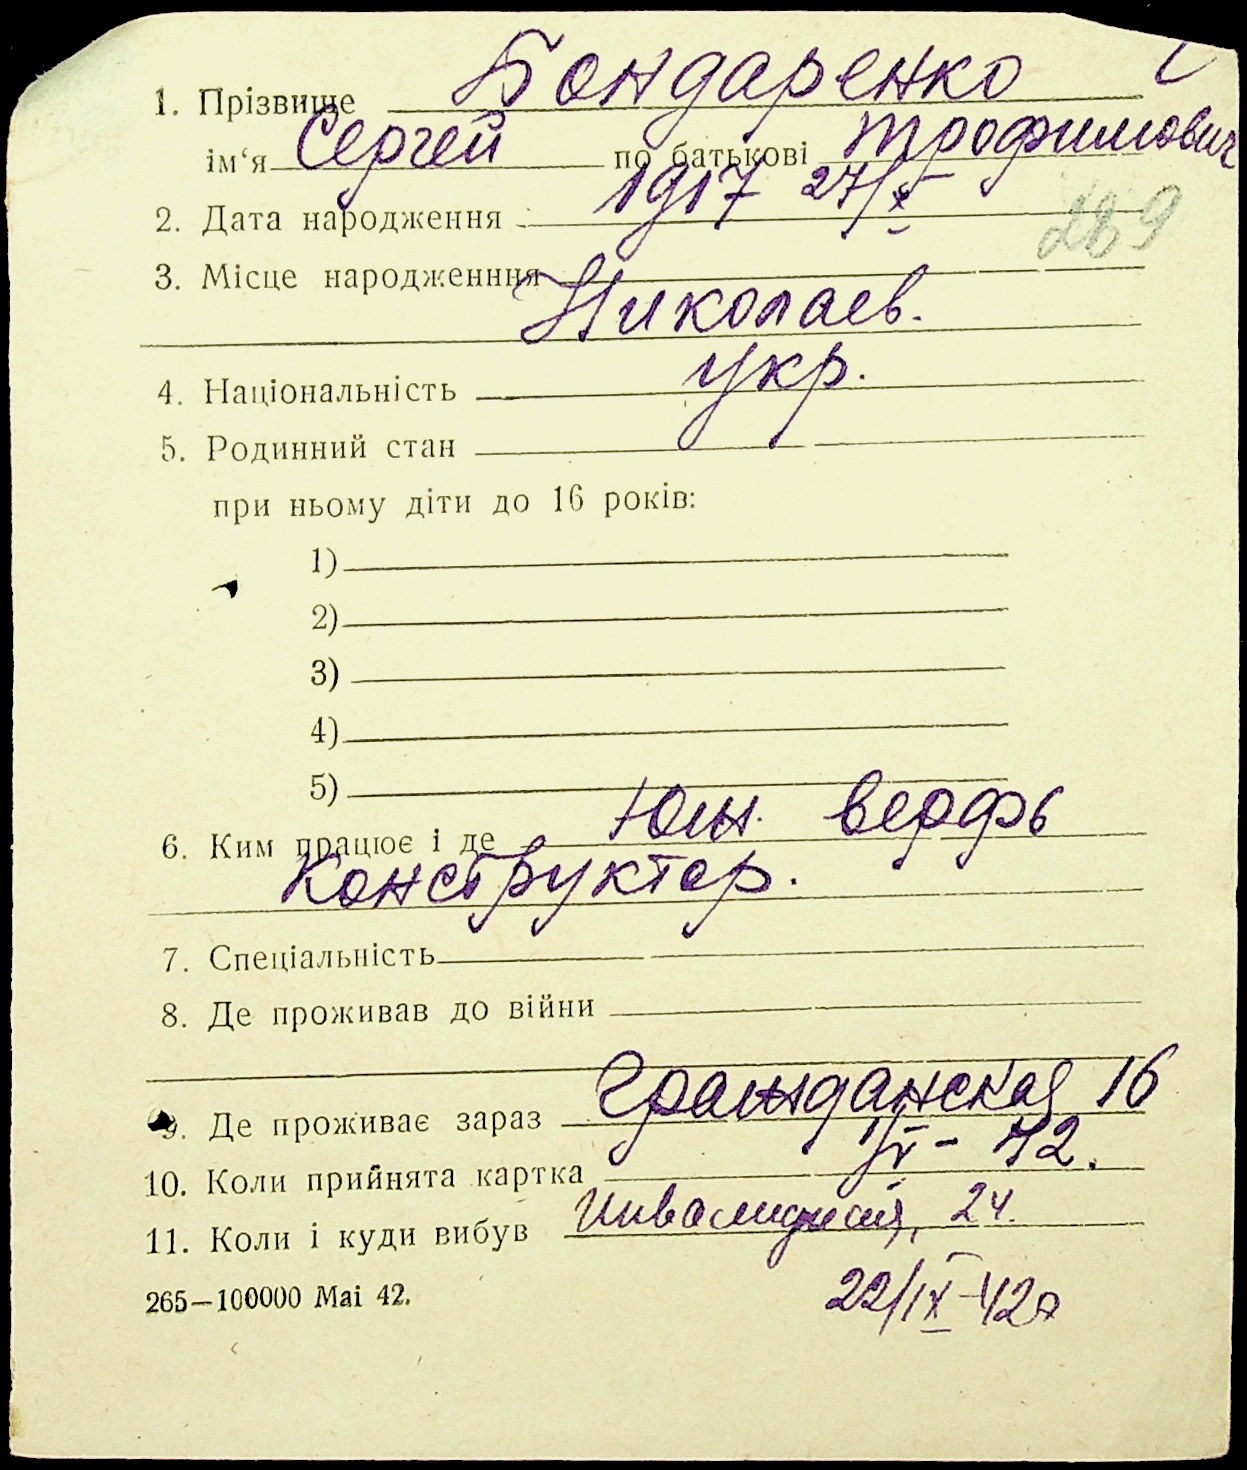 1. Прізвище Бондаренко
ім‘я Сергей по батькові Трофимович
2. Дата народження 1917 27/X
289
3. Місце народженння
Николаев.
4. Національність укр.
5. Родинний стан
при ньому діти до 16 років:
1)
2)
3)
4)
5)
6. Ким працює і де Южн. верфь
Конструктор.
7. Спеціальність
8. Де проживав до війни
9. Де проживає зараз Гражданская 16
10. Коли прийнята картка 42.
11. Коли і куди вибув 24.
265—100000 Mai 42.
22/IX-42